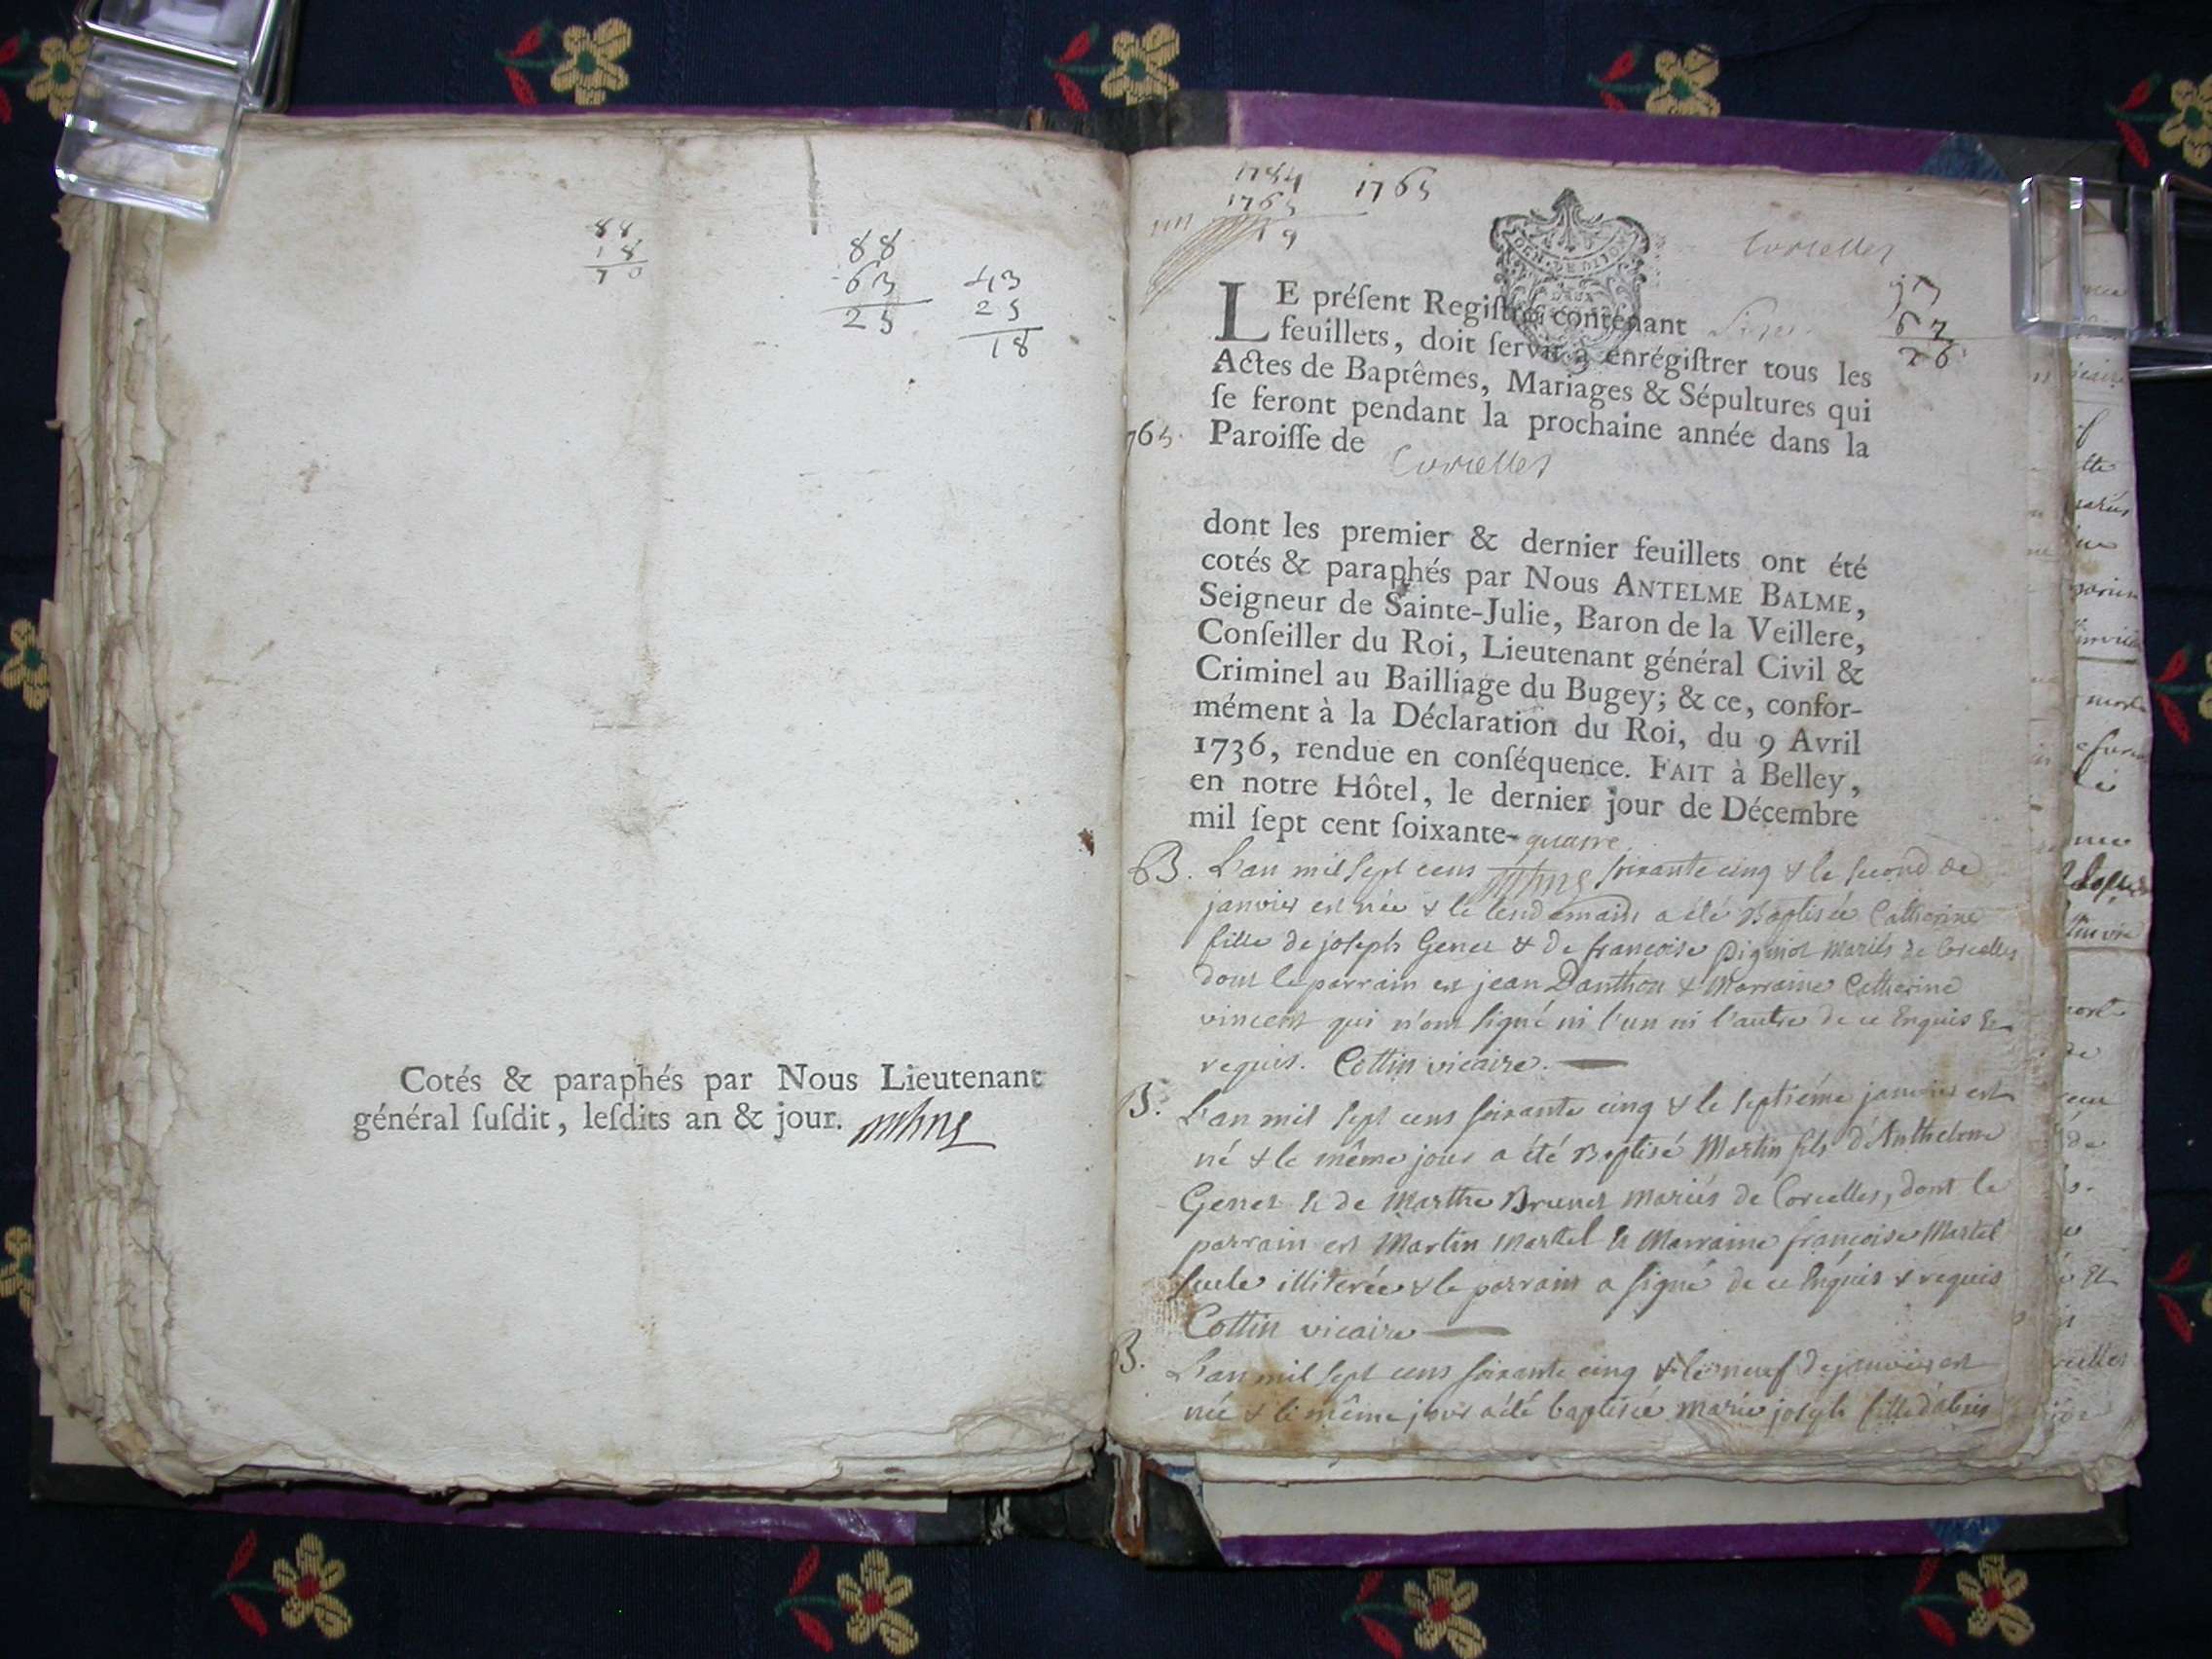 88
18
70
88
63
25
43
25
18
Cotés & paraphés par Nous Lieutenant
général ſuſdit, leſdits an & jour.
1784
1765
19
1765
Corcelles
LE préſent Regiſtre contenant
feuillets, doit ſervir à enrégiſtrer tous les
Actes de Baptêmes, Mariages & Sépultures qui
ſe feront pendant la prochaine année dans la
Paroiſſe de
765.
Corcelles
dont les premier & dernier feuillets ont été
cotés & paraphés par Nous ANTELME BALME,
Seigneur de Sainte-Julie, Baron de la Veillere,
Conſeiller du Roi, Lieutenant général Civil &
Criminel au Bailliage du Bugey; & ce, confor-
mément à la Déclaration du Roi, du 9 Avril
1736, rendue en conſéquence. FAIT à Belley,
en notre Hôtel, le dernier jour de Décembre
mil ſept cent ſoixante-quatre
B. L'an mil sept cens soixante cinq & le second de
janvier est née & le lendemain a été Baptisée Catherine
fille de joseph Genet & de francoise Pigniot mariés de Corcelles
dont le parrain est jean Danthon & Marraine Catherine
vincent qui n'ont signé ni l'un ni l'autre de ce Enquis &
requis. Cottin vicaire.
B. L'an mil sept cens soixante cinq & le septiéme janvier est
né & le même jour a été Baptisé Martin fils d'Anthelme
Genet & de Marthe Brunet mariés de Corcelles, dont le
parrain est Martin Martel & Marraine francoise Martel
seule illiterée & le parrain a signé de ce Enquis & requis
Cottin vicaire
B. L'an mil sept cens soixante cinq & le neuf de janvier est
née & le même jour a été baptisée marie joseph fille